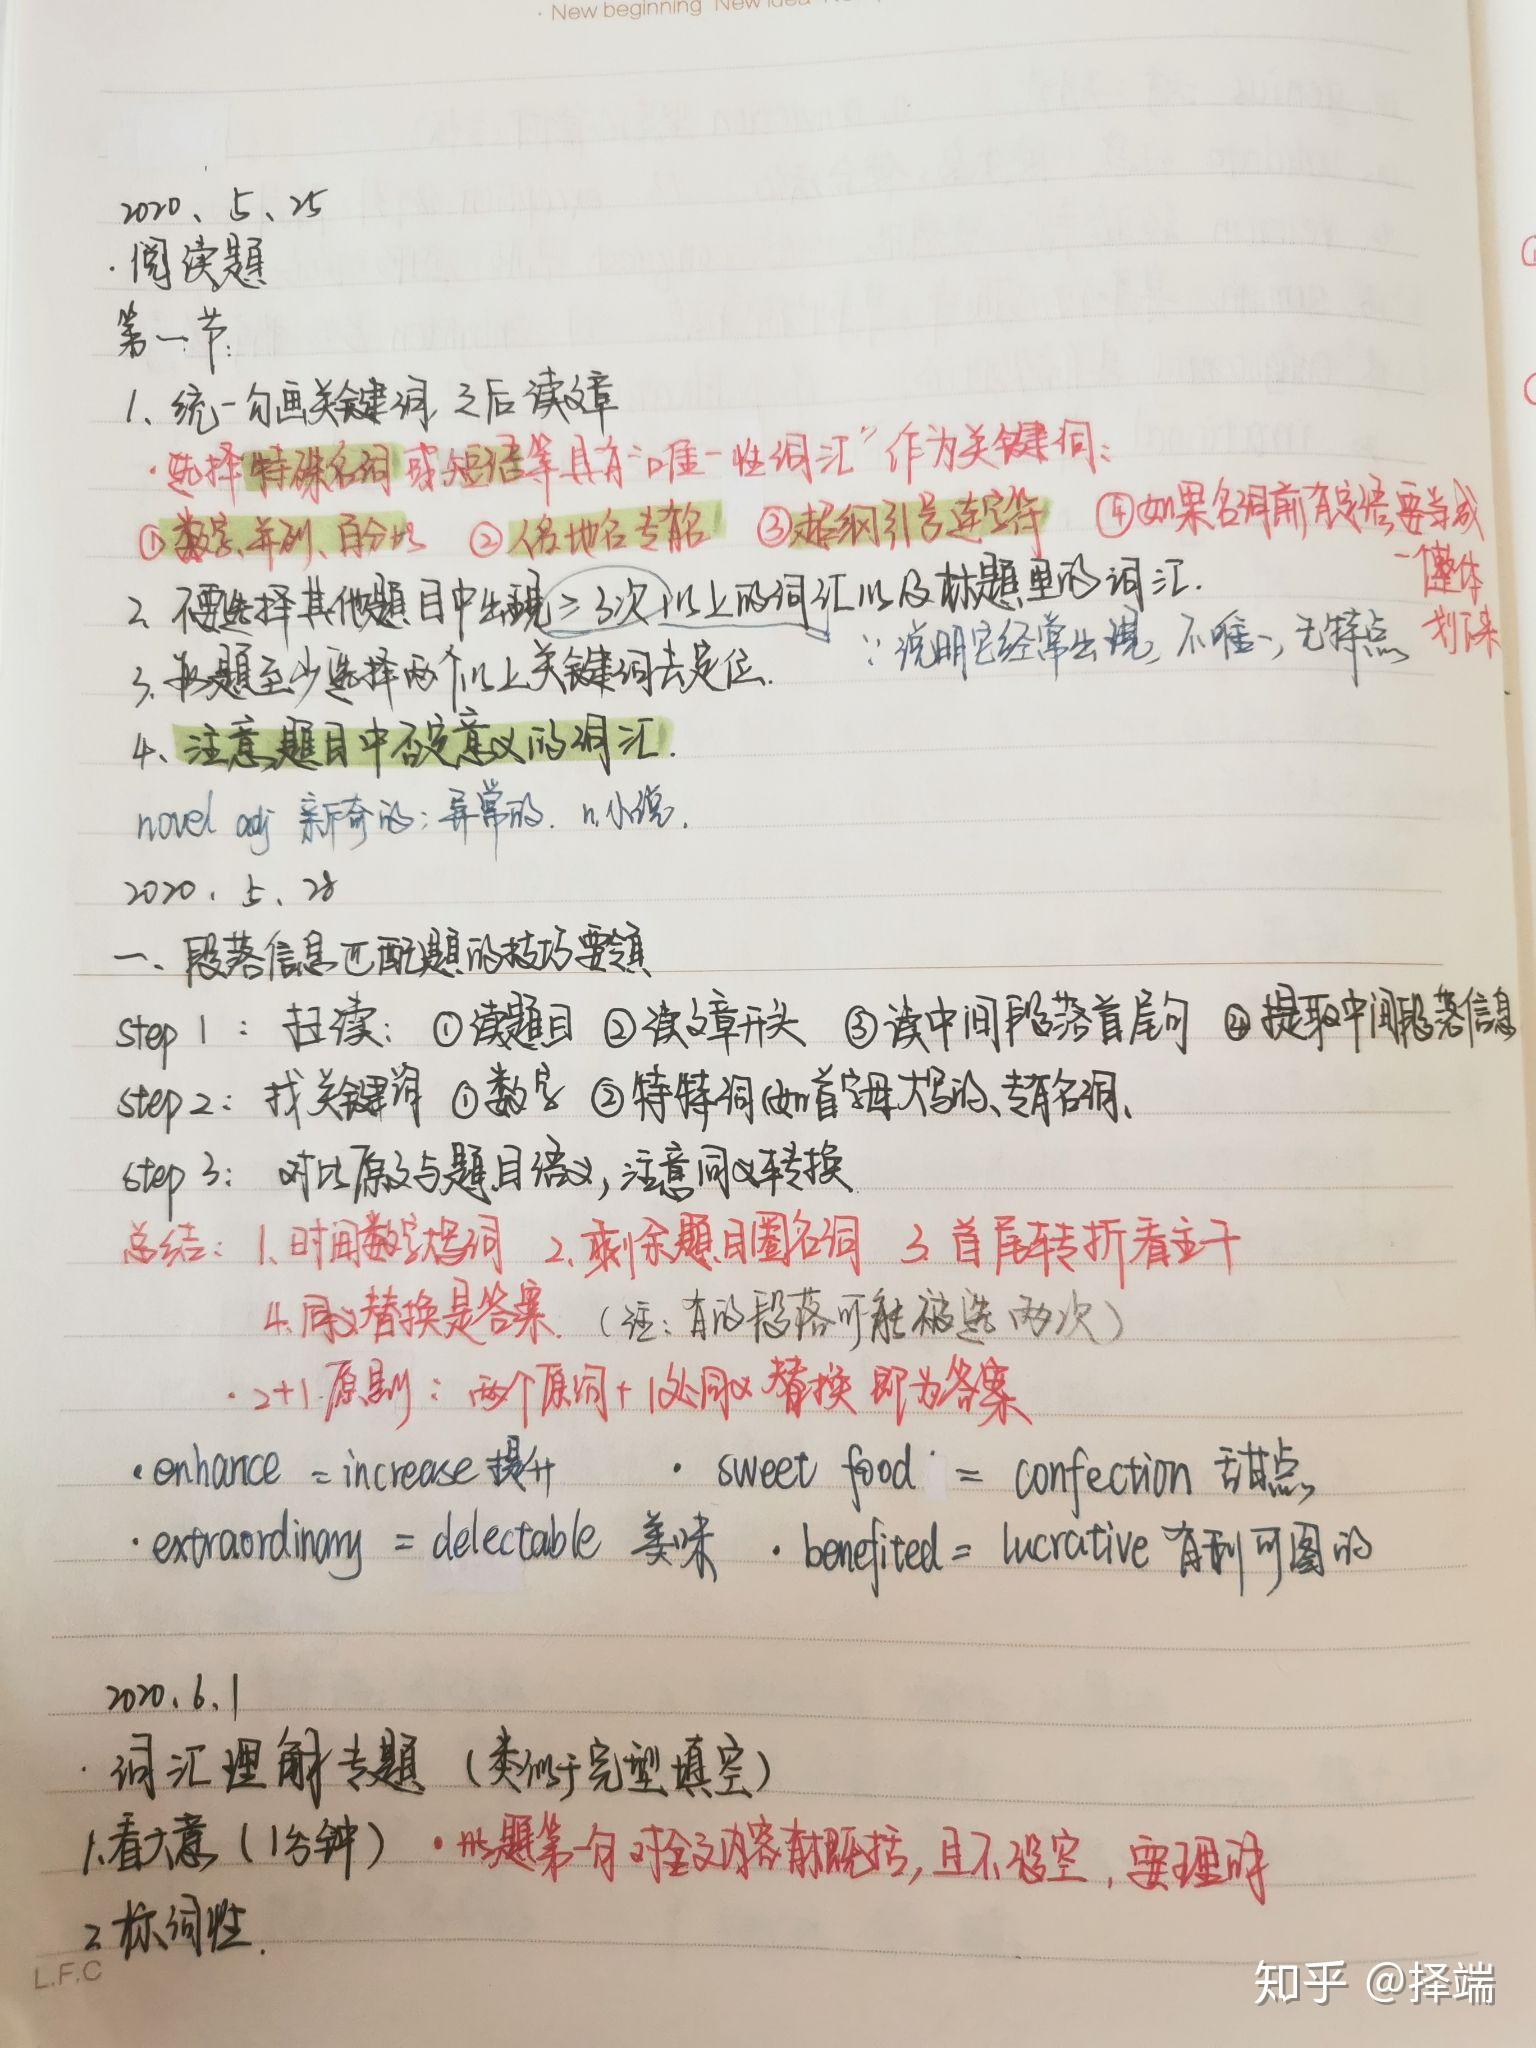 · New beginning New idea
2020、5、25
·阅读题
第一节:
1、统一勾画关键词,之后读文章
·选择特殊名词或短语等具有“唯一性词汇”作为关键词:
①数字、并列、百分比 ②人名地名专有名 ③超纲引号连字符 ④如果名词前有定语,要当成一个整体划下来
2、不要选择其他题目中出现≥3次以上的词汇以及标题里的词汇.
∵说明它经常出现,不唯一,无特点
3、每题至少选择两个以上关键词去定位.
4、注意题目中否定意义的词汇.
novel adj 新奇的;异常的. n.小说.
2020、5、28
一、段落信息匹配题的技巧要领
step 1: 扫读: ①读题目 ②读文章开头 ③读中间段落首尾句 ④提取中间段落信息
step 2: 找关键词 ①数字 ②特特词(如首字母大写的、专有名词、
step 3: 对比原文与题目语义,注意同义转换
总结: 1.时间数字大写词 2.剩余题目圈名词 3.首尾转折看主干
4.同义替换是答案. (注:有的段落可能被选两次)
·2+1原则: 两个原词+1处同义替换即为答案
·enhance = increase 提升 · sweet food = confection 甜点
·extraordinary = delectable 美味 · benefited = lucrative 有利可图的
2020.6.1
·词汇理解专题(类似于完型填空)
1.看大意(1分钟) ·此题第一句对全文内容有概括,且不设空,要理解
2.标词性.
L.F.C
知乎 @择端